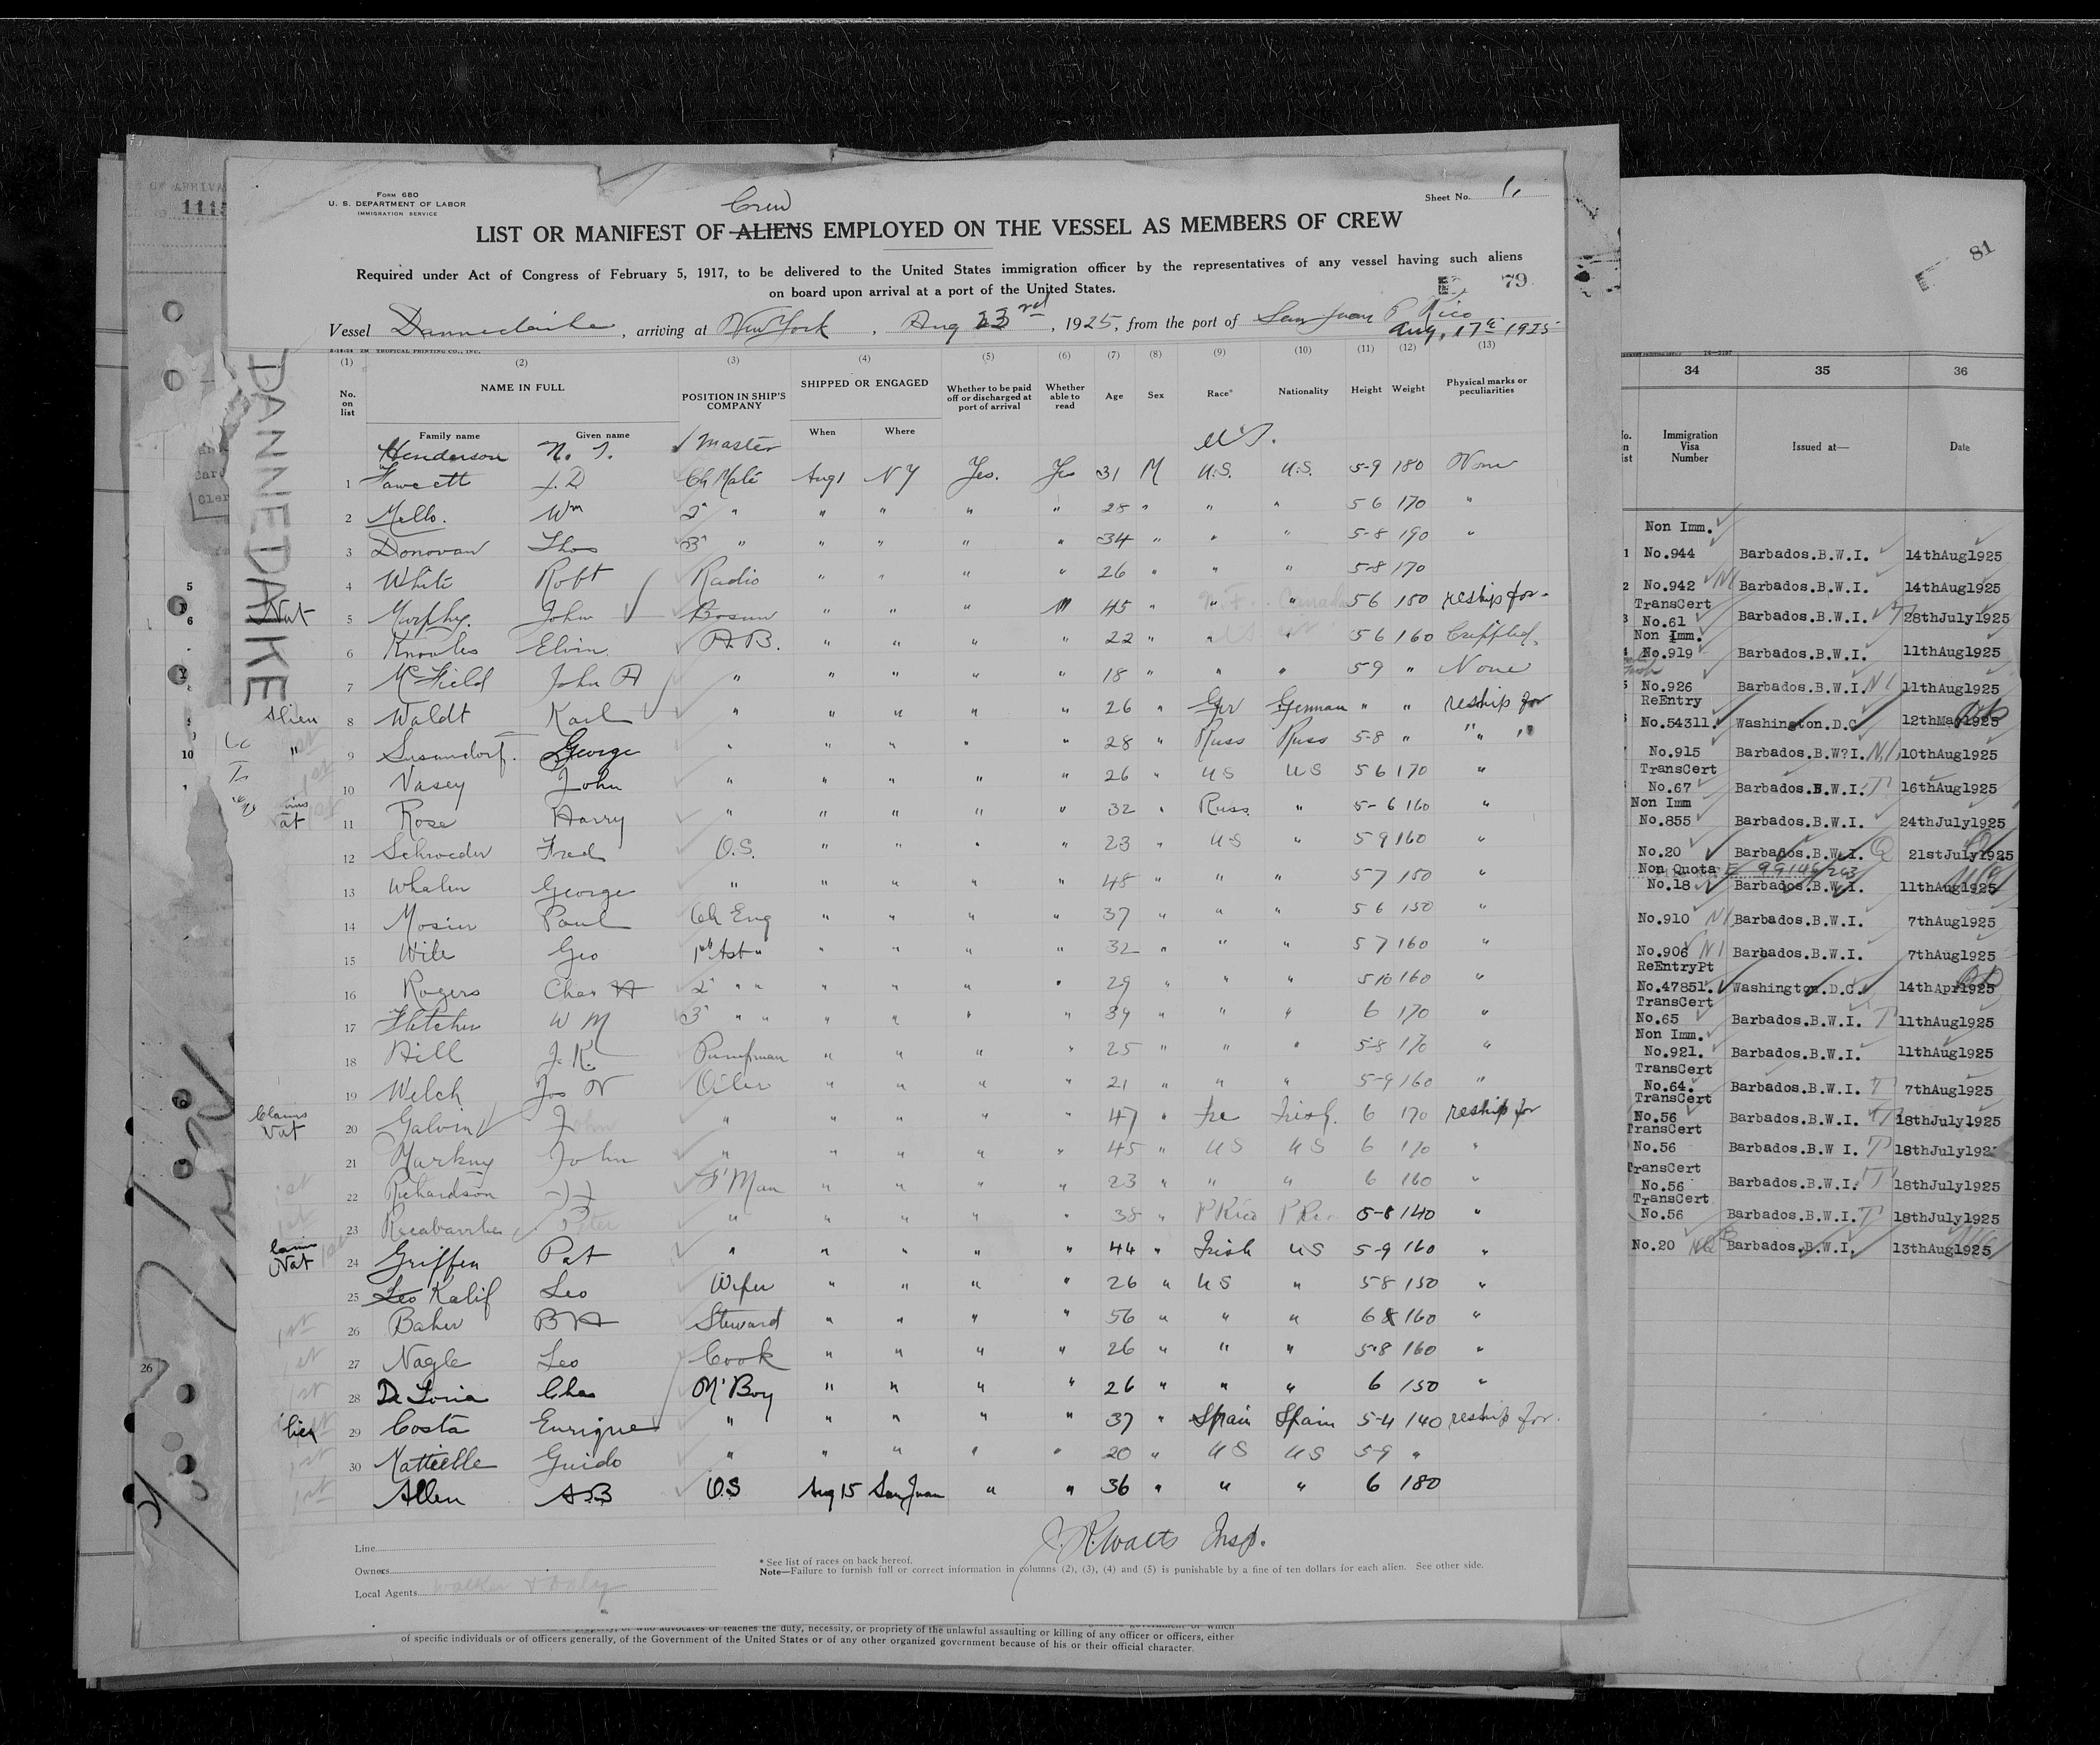 Form 680
U. S. DEPARTMENT OF LABOR
IMMIGRATION SERVICE
Crew
Sheet No.
LIST OR MANIFEST OF ALIENS EMPLOYED ON THE VESSEL AS MEMBERS OF CREW
Required under Act of Congress of February 5, 1917, to be delivered to the United States immigration officer by the representatives of any vessel having such aliens
on board upon arrival at a port of the United States.
79
Vessel Dannedaike, arriving at New York, Aug 23rd, 1925, from the port of San Juan P Rico
Aug, 17th 1925
DANNEDAIKE
TROPICAL PRINTING CO., INC.
(1) (2) (3) (4) (5) (6) (7) (8) (9) (10) (11) (12) (13)
No. on list NAME IN FULL POSITION IN SHIP'S COMPANY SHIPPED OR ENGAGED Whether to be paid off or discharged at port of arrival Whether able to read Age Sex Race* Nationality Height Weight Physical marks or peculiarities
Family name Given name When Where
Henderson Master U.S.
1 Fawcett J.D Ch Mate Aug 1 NY Yes. Yes 31 M U.S. U.S. 5-9 180 None
2 Mello. Wm 2" " " " " " 28 " " " 5 6 170 "
3 Donovan Thos 3" " " " " " 34 " " " 5-8 190 "
4 White Robt Radio " " " " 26 " " " 5-8 170
Nat 5 Murphy. John Bosun " " " " 45 " " " Canada 5 6 180 reship for-
6 Knowles Elvin. A.B. " " " " 22 " " " 5 6 160 Crippled.
7 McField John A " " " " " 18 " " " 5 9 " None
Alien 8 Waldt Karl " " " " " 26 " Ger German " " reship for
" 9 George " " " " " 28 " Russ Russ 5-8 " " "
10 Vasey John " " " " " 26 " US US 5 6 170 "
11 Rose Harry " " " " " 32 " Russ " 5-6 160 "
12 Schroeder Fred O.S. " " " " 23 " US " 5 9 160 "
13 Whalen George " " " " " 48 " " " 5 7 150 "
14 Mosier Paul Ch Eng " " " " 37 " " " 5 6 150 "
15 Wile Geo 1st Ast " " " " " 32 " " " 5 7 160 "
16 Rogers Chas H 2" " " " " " " 29 " " " 5 10 160 "
17 Fletcher W M 3" " " " " " " 34 " " " 6 170 "
18 Hill J. K. Pumpman " " " " 25 " " " 5-8 170 "
19 Welch Jos Oiler " " " " 21 " " " 5-9 160 "
Claims Nat 20 Galvin John " " " " " 47 " Ire Irish. 6 170 reship for
21 John " " " " " 45 " US US 6 170 "
1st 22 Richardson F'Man " " " " 23 " " " 6 160 "
1st 23 Peter " " " " " 38 " P Rico P Rico 5-8 140 "
Claims Nat 24 Griffen Pat " " " " " 44 " Irish US 5-9 160 "
25 Leo Kalif Leo Wiper " " " " 26 " US " 5 8 150 "
1st 26 Baker B H Steward " " " " 56 " " " 6 160 "
1st 27 Nagle Leo Cook " " " " 26 " " " 5-8 160 "
1st 28 De Loria Chas M'Boy " " " " 26 " " " 6 150 "
Alien 29 Costa Enrique " " " " " 37 " Spain Spain 5-4 140 reship for.
1st 30 Guido " " " " " 20 " US US 5-9 "
1st Allen A.B O.S Aug 15 San Juan " " 36 " " " 6 180
J. R. Watts Insp.
Line
Owners
Local Agents Walker & Daly
* See list of races on back hereof.
Note—Failure to furnish full or correct information in columns (2), (3), (4) and (5) is punishable by a fine of ten dollars for each alien. See other side.
of specific individuals or of officers generally, of the Government of the United States or of any other organized government because of his or their official character.
81
34 35 36
Immigration Visa Number Issued at— Date
Non Imm.
1 No.944 Barbados.B.W.I. 14thAug1925
2 No.942 Barbados.B.W.I. 14thAug1925
TransCert
No.61 Barbados.B.W.I. 28thJuly1925
Non Imm.
No.919 Barbados.B.W.I. 11thAug1925
No.926 Barbados.B.W.I. 11thAug1925
ReEntry
No.54311. Washington.D.C 12thMay1925
No.915 Barbados.B.W?I. 10thAug1925
TransCert
No.67 Barbados.B.W.I. 16thAug1925
Non Imm
No.855 Barbados.B.W.I. 24thJuly1925
No.20 Barbados.B.W.I. 21stJuly1925
Non Quota
No.18 Barbados.B.W.I. 11thAug1925
No.910 Barbados.B.W.I. 7thAug1925
No.906 Barbados.B.W.I. 7thAug1925
ReEntryPt
No.47851. Washington.D.C. 14thApr1925
TransCert
No.65 Barbados.B.W.I. 11thAug1925
Non Imm.
No.921. Barbados.B.W.I. 11thAug1925
TransCert
No.64. Barbados.B.W.I. 7thAug1925
TransCert
No.56 Barbados.B.W.I. 18thJuly1925
TransCert
No.56 Barbados.B.W I. 18thJuly192
TransCert
No.56 Barbados.B.W.I. 18thJuly1925
TransCert
No.56 Barbados.B.W.I. 18thJuly1925
No.20 Barbados.B.W.I. 13thAug1925